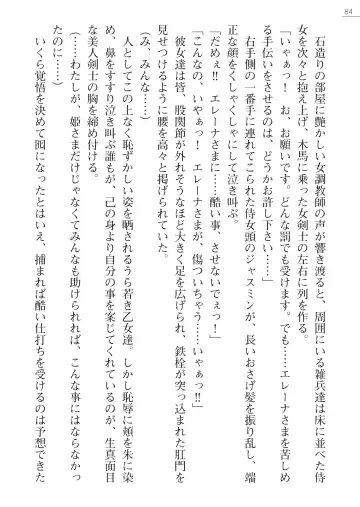 84
石造りの部屋に艶かしい女調教師の声が響き渡ると、周囲にいる雑兵達は床に並べた侍
女を次々と抱え上げ、木馬に乗った女剣士の左右に列を作る。
「いゃぁっ！　お、お願いです。どんな罰でも受けます。でも……エレーナさまを苦しめ
る手伝いをさせるのは、どうかお許し下さい……」
右手側の一番手に連れてこられた侍女頭のジャスミンが、長いおさげ髪を振り乱し、端
正な顔をくしゃくしゃにして泣き叫ぶ。
「だめぇ!!　エレーナさまに……酷い事、させないでぇっ！」
「こんなの、いやぁっ！　エレーナさまが、傷ついちゃう……いやぁっ!!」
彼女達は皆、股関節が外れそうなほど大きく足を広げられ、鉄栓が突っ込まれた肛門を
見せつけるように腰を高々と掲げられていた。
（み、みんな……）
人としてこの上なく恥ずかしい姿を晒されるうら若き乙女達。しかし恥辱に頬を朱に染
め、鼻をすすり泣き叫ぶ誰もが、己の身より自分の事を案じてくれているのが、生真面目
な美人剣士の胸を締め付ける。
（……わたしが、姫さまだけじゃなくてみんなも助けられれば、こんな事にはならなかっ
たのに……）
いくら覚悟を決めて囮になったとはいえ、捕まれば酷い仕打ちを受けるのは予想できた